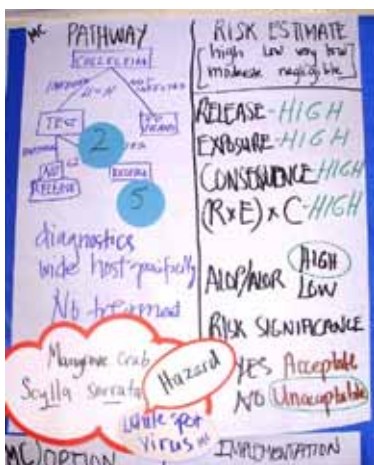 MC PATHWAY
COLLECTION
TEST
2
RELEASE
5
diagnostics
wide host specificity
No treatment
Mangrove Crab
Scylla serrata
Hazard
White spot
Virus
RISK ESTIMATE
high low very low
moderate negligible
RELEASE-HIGH
EXPOSURE-HIGH
CONSEQUENCE HIGH
(RxE)xC-HIGH
HIGH
ALOP/ALOR LOW
RISK SIGNIFICANCE
YES Acceptable
NO Unacceptable
MC) OPTION
IMPLEMENTATION